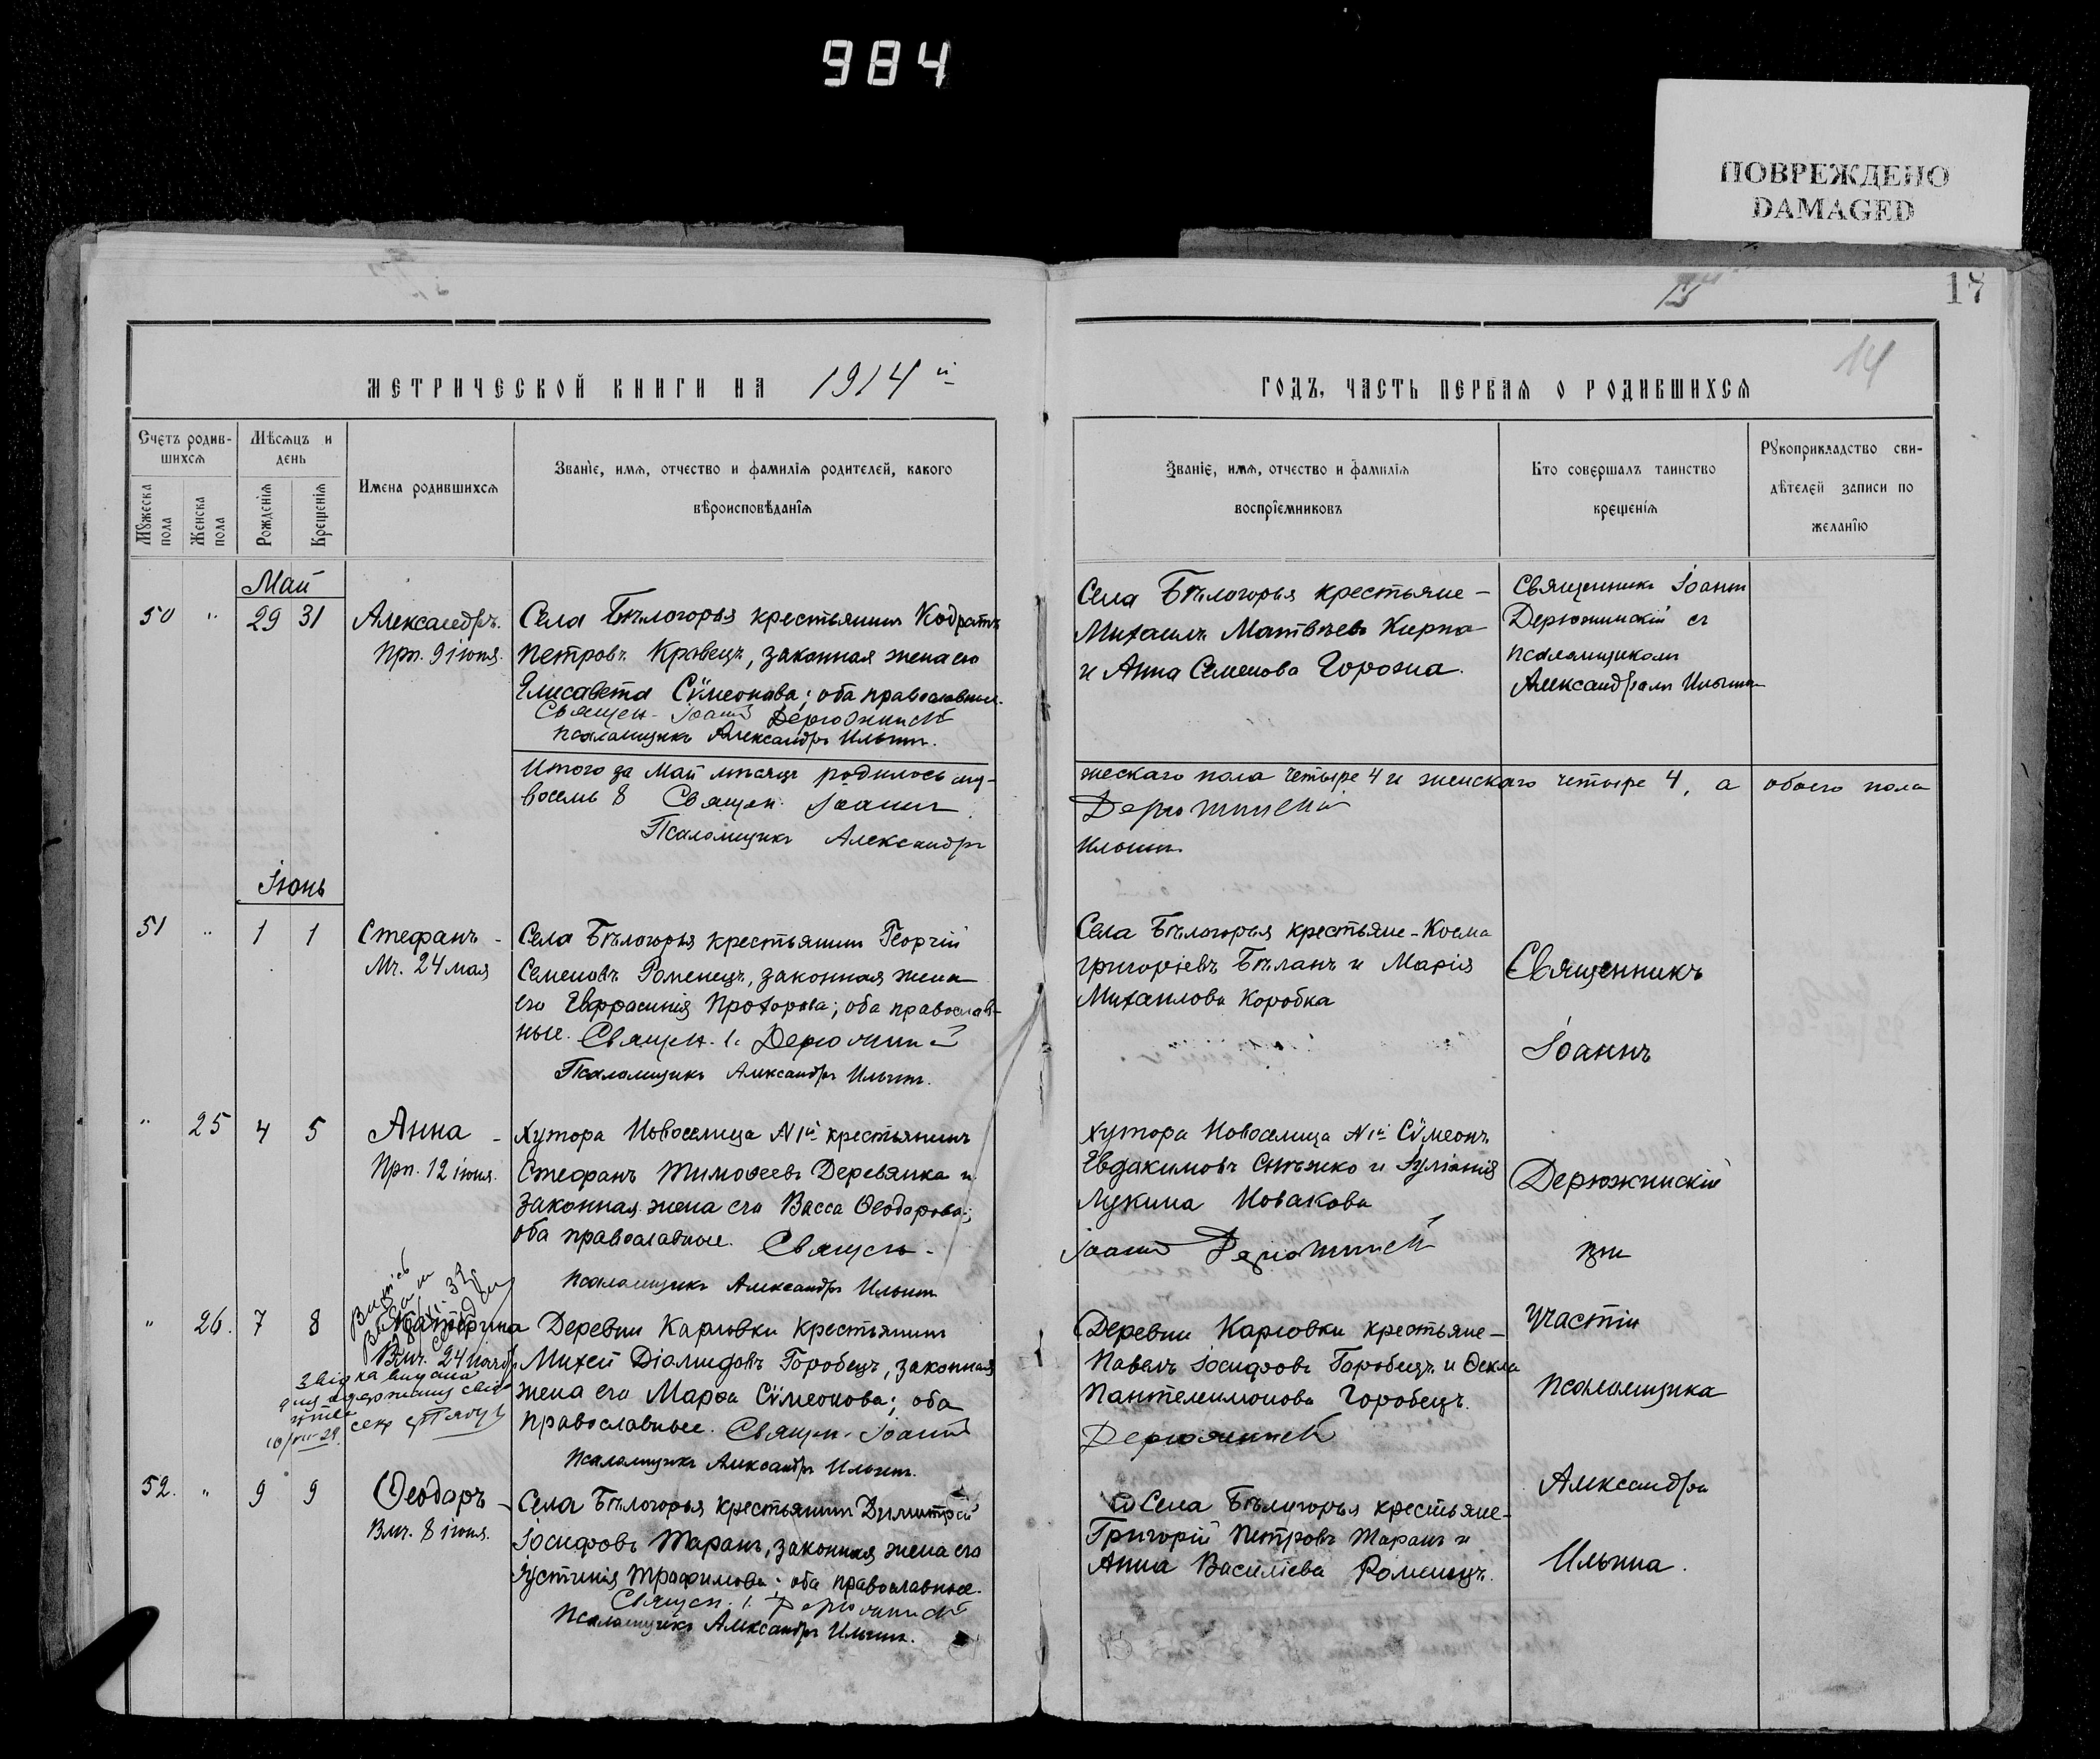 984
ПОВРЕЖДЕНО
DAMAGED
18
14
МЕТРИЧЕСКОЙ КНИГИ НА 1914й
Счетъ родив-
шихся
Мѣсяцъ и
день
Мужеска
пола
Женска
пола
Рожденія
Крещенія
Имена родившихся
Званіе, имя, отчество и фамилія родителей, какого
вѣроисповѣданія
Май
50 " 29 31 Александръ.
Прп. 9 іюня.
Села Бѣлогорья крестьянинъ Кодратъ
Петровъ Кравецъ, законная жена его
Елисавета Сѵмеонова; оба православные.
Священ. Іоаннъ Дерюжинскій
Псаломщикъ Александръ Ильинъ.
Итого за Май мѣсяцъ родилось му-
восемь 8 Священ. Іоаннъ
Псаломщикъ Александръ
Іюнь
51 " 1 1 Стефанъ -
Мч. 24 мая
Села Бѣлогорья крестьянинъ Георгій
Семеновъ Роменецъ, законная жена
его Евфросинія Прохорова; оба православ-
ные. Священ. І. Дерюжинскій
Псаломщикъ Александръ Ильинъ.
" 25 4 5 Анна -
Прп. 12 іюня.
Хутора Новоселица №1й крестьянинъ
Стефанъ Тимоѳеевъ Деревянка и
законная жена его Васса Ѳеодорова;
оба православные. Священ.
Псаломщикъ Александръ Ильинъ
" 26. 7 8 Екатерина
Вмч. 24 нояб.
Деревни Карловки крестьянинъ
Михей Діомидовъ Горобецъ, законная
жена его Марѳа Сѵмеонова; оба
православные. Священ. Іоаннъ
Псаломщикъ Александръ Ильинъ.
видана
10/VII-29
52. " 9 9 Ѳеодоръ -
Вмч. 8 іюня.
Села Бѣлогорья крестьянинъ Димитрій
Іосифовъ Таранъ, законная жена его
Іустинія Трофимова; оба православные.
Священ. І. Дерюжинскій
Псаломщикъ Александръ Ильинъ.
ГОДЪ, ЧАСТЬ ПЕРВАЯ О РОДИВШИХСЯ
Званіе, имя, отчество и фамилія
воспріемниковъ
Кто совершалъ таинство
крещенія
Рукоприкладство сви-
дѣтелей записи по
желанію
Села Бѣлогорья крестьяне -
Михаилъ Матвѣевъ Кирпа
и Анна Семенова Горожа.
Священникъ Іоаннъ
Дерюжинскій съ
псаломщикомъ
Александромъ Ильинымъ
жескаго пола четыре 4 и женскаго четыре 4, а обоего пола
Дерюжинскій
Ильинъ.
Села Бѣлогорья крестьяне - Косма
Григоріевъ Бѣланъ и Марія
Михаилова Коробка
Священникъ
Іоаннъ
Хутора Новоселица №1й Сѵмеонъ
Евдакимовъ Снѣжко и Іуліанія
Лукина Новакова
Іоаннъ Дерюжинскій
Дерюжинскій
при
Деревни Карловки крестьяне -
Павелъ Іосифовъ Горобецъ и Ѳекла
Пантелеимонова Горобецъ.
Дерюжинскій
участіи
псаломщика
Села Бѣлогорья крестьяне -
Григорій Петровъ Таранъ и
Анна Василіева Роменецъ.
Александра
Ильина.